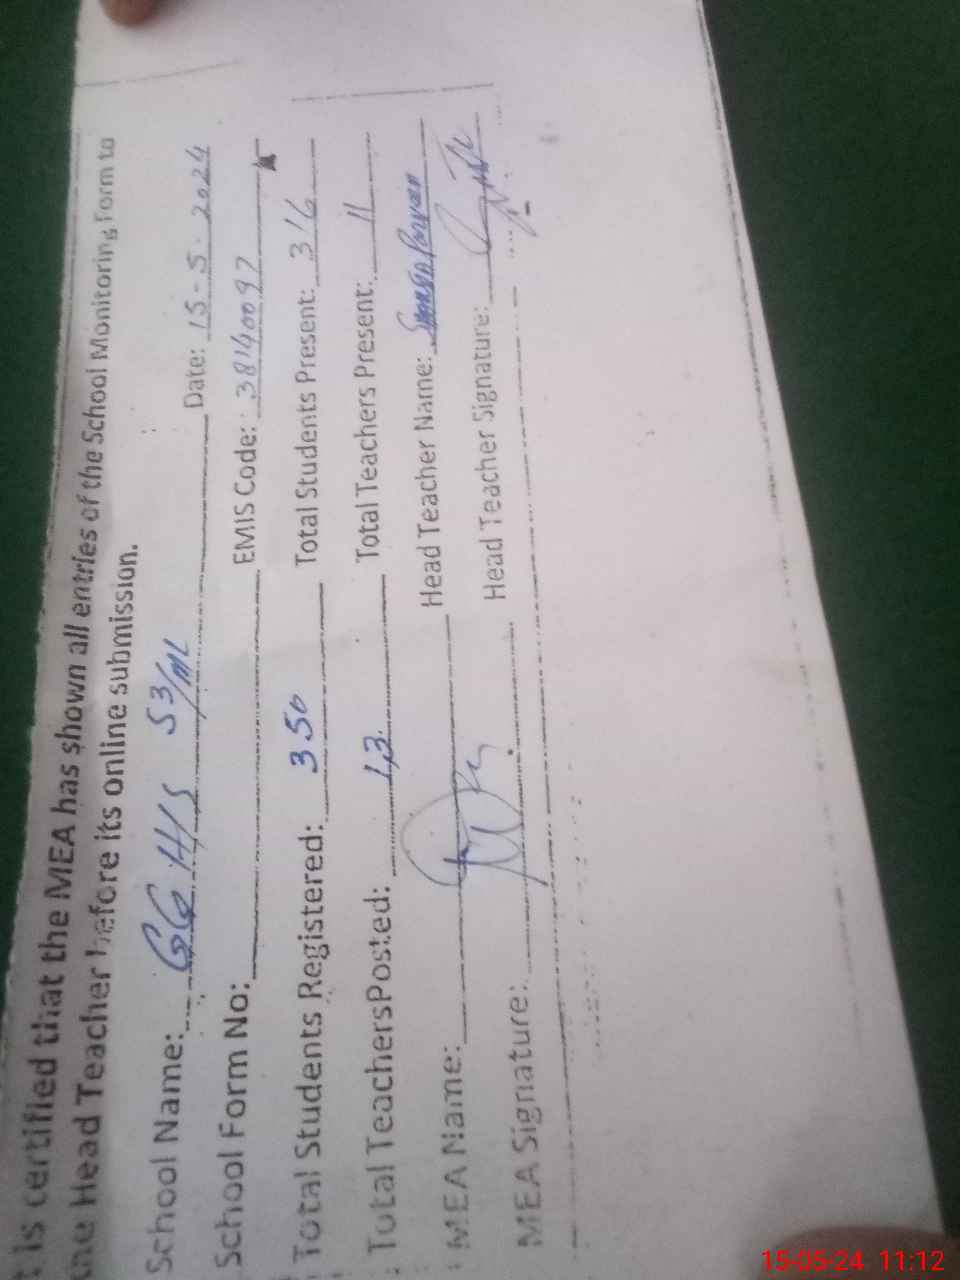 is certified that the MEA has shown all entries of the School Monitoring Form to
the Head Teacher before its online submission.
School Name: GGHS 53/ML Date: 15-5-2024
School Form No: EMIS Code: 38140097
Total Students Registered: 350 Total Students Present: 316
Total TeachersPosted: 13 Total Teachers Present: 11
MEA Name: Head Teacher Name: Parveen
MEA Signature: Head Teacher Signature:
15-05-24 11:12